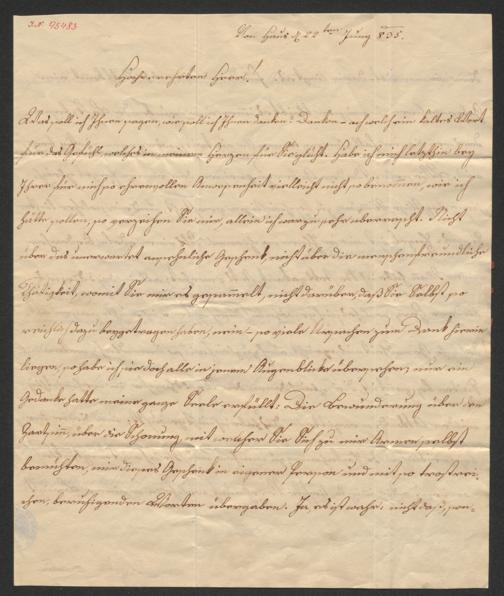 I.N. 95483
Von Haus d 22ten Juny 835.
Hochverehrter Herr!
Was soll ich Ihnen sagen, wie soll ich Ihnen danken? Danken – ach welch ein kaltes Wort
für das Gefühl, welches in meinem Herzen für Sie glüht. Habe ich mich letzthin bey
Ihrer für mich so ehrenvollen Anwesenheit vielleicht nicht so benommen, wie ich
hätte sollen, so verzeihen Sie mir, allein ich war zu sehr überrascht. Nicht
über das unerwartet ansehnliche Geschenk, nicht über die menschenfreundliche
Thätigkeit, womit Sie mir es gesammelt, nicht darüber, daß Sie Selbst so
reichlich dazu beygetragen haben, nein – so viele Ursachen zum Dank hierin
liegen, so habe ich sie doch alle in jenem Augenblicke übersehen; nur ein
Gedanke hatte meine ganze Seele erfüllt: Die Bewunderung über den
Zartsinn, über die Schonung mit welcher Sie Sich zu mir Armen selbst
bemühten, mir dieses Geschenk in eigener Person und mit so trostrei-
chen, beruhigenden Worten übergaben. Ja, es ist wahr: nicht daß, son-